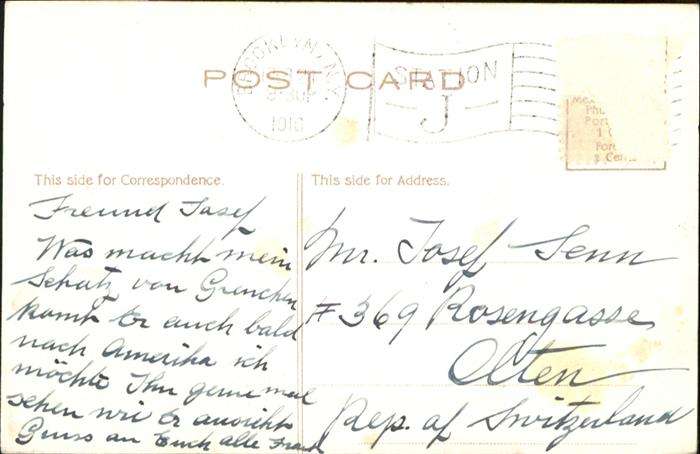 POST CARD
BROOKLYN, N.Y.
1910
STATION
J
1
For
2 Cen
This side for Correspondence.
This side for Address.
Freund Josef
Was macht mein
Schatz von Grenchen
komt Er auch bald
nach Amerika ich
möchte Ihn gerne mal
sehen wie Er aussieht
Gruss an Euch alle
Mr. Josef Senn
# 369 Rosengasse
Olten
Rep. of Switzerland